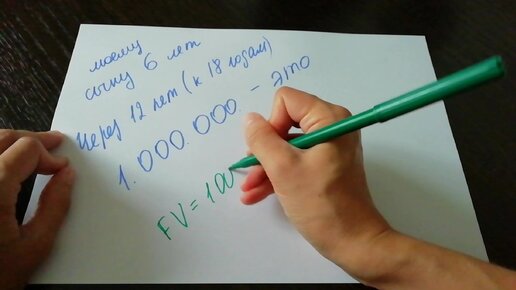 моему
сыну 6 лет
Через 12 лет (к 18 годам)
1.000.000. - это
FV = 100